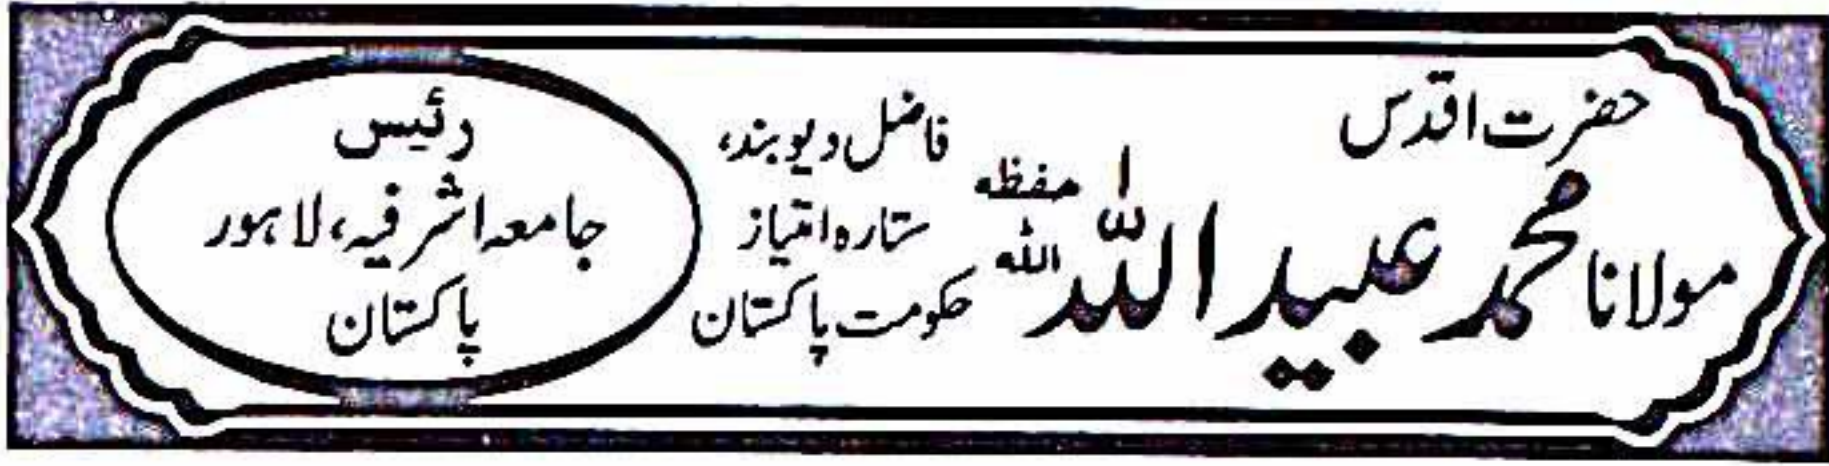 حضرت اقدس
مولانا محمد عبید اللہ حفظہ اللہ
فاضل دیوبند،
ستارہ امتیاز
حکومت پاکستان
رئیس
جامعہ اشرفیہ، لاہور
پاکستان